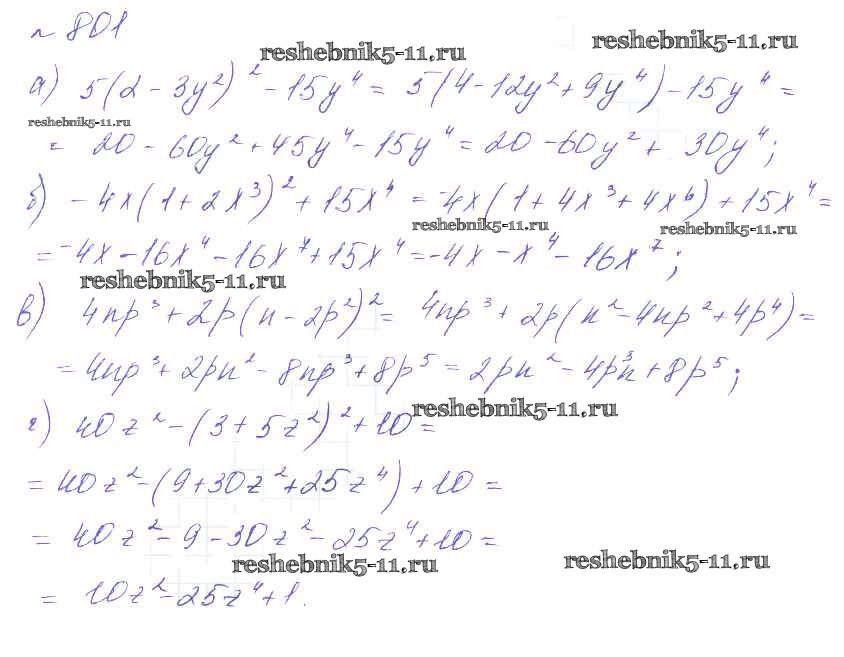 № 801
reshebnik5-11.ru
reshebnik5-11.ru
а) 5(2 - 3y²)² - 15y⁴ = 5(4 - 12y² + 9y⁴) - 15y⁴ =
reshebnik5-11.ru
= 20 - 60y² + 45y⁴ - 15y⁴ = 20 - 60y² + 30y⁴;
б) - 4x(1 + 2x³)² + 15x⁴ = -4x(1 + 4x³ + 4x⁶) + 15x⁴ =
reshebnik5-11.ru
reshebnik5-11.ru
= -4x - 16x⁴ - 16x⁷ + 15x⁴ = -4x - x⁴ - 16x⁷;
reshebnik5-11.ru
в) 4np³ + 2p(n - 2p²)² = 4np³ + 2p(n² - 4np² + 4p⁴) =
= 4np³ + 2pn² - 8np³ + 8p⁵ = 2pn² - 4p³n + 8p⁵;
reshebnik5-11.ru
г) 40z² - (3 + 5z²)² + 10 =
= 40z² - (9 + 30z² + 25z⁴) + 10 =
= 40z² - 9 - 30z² - 25z⁴ + 10 =
reshebnik5-11.ru
reshebnik5-11.ru
= 10z² - 25z⁴ + 1.